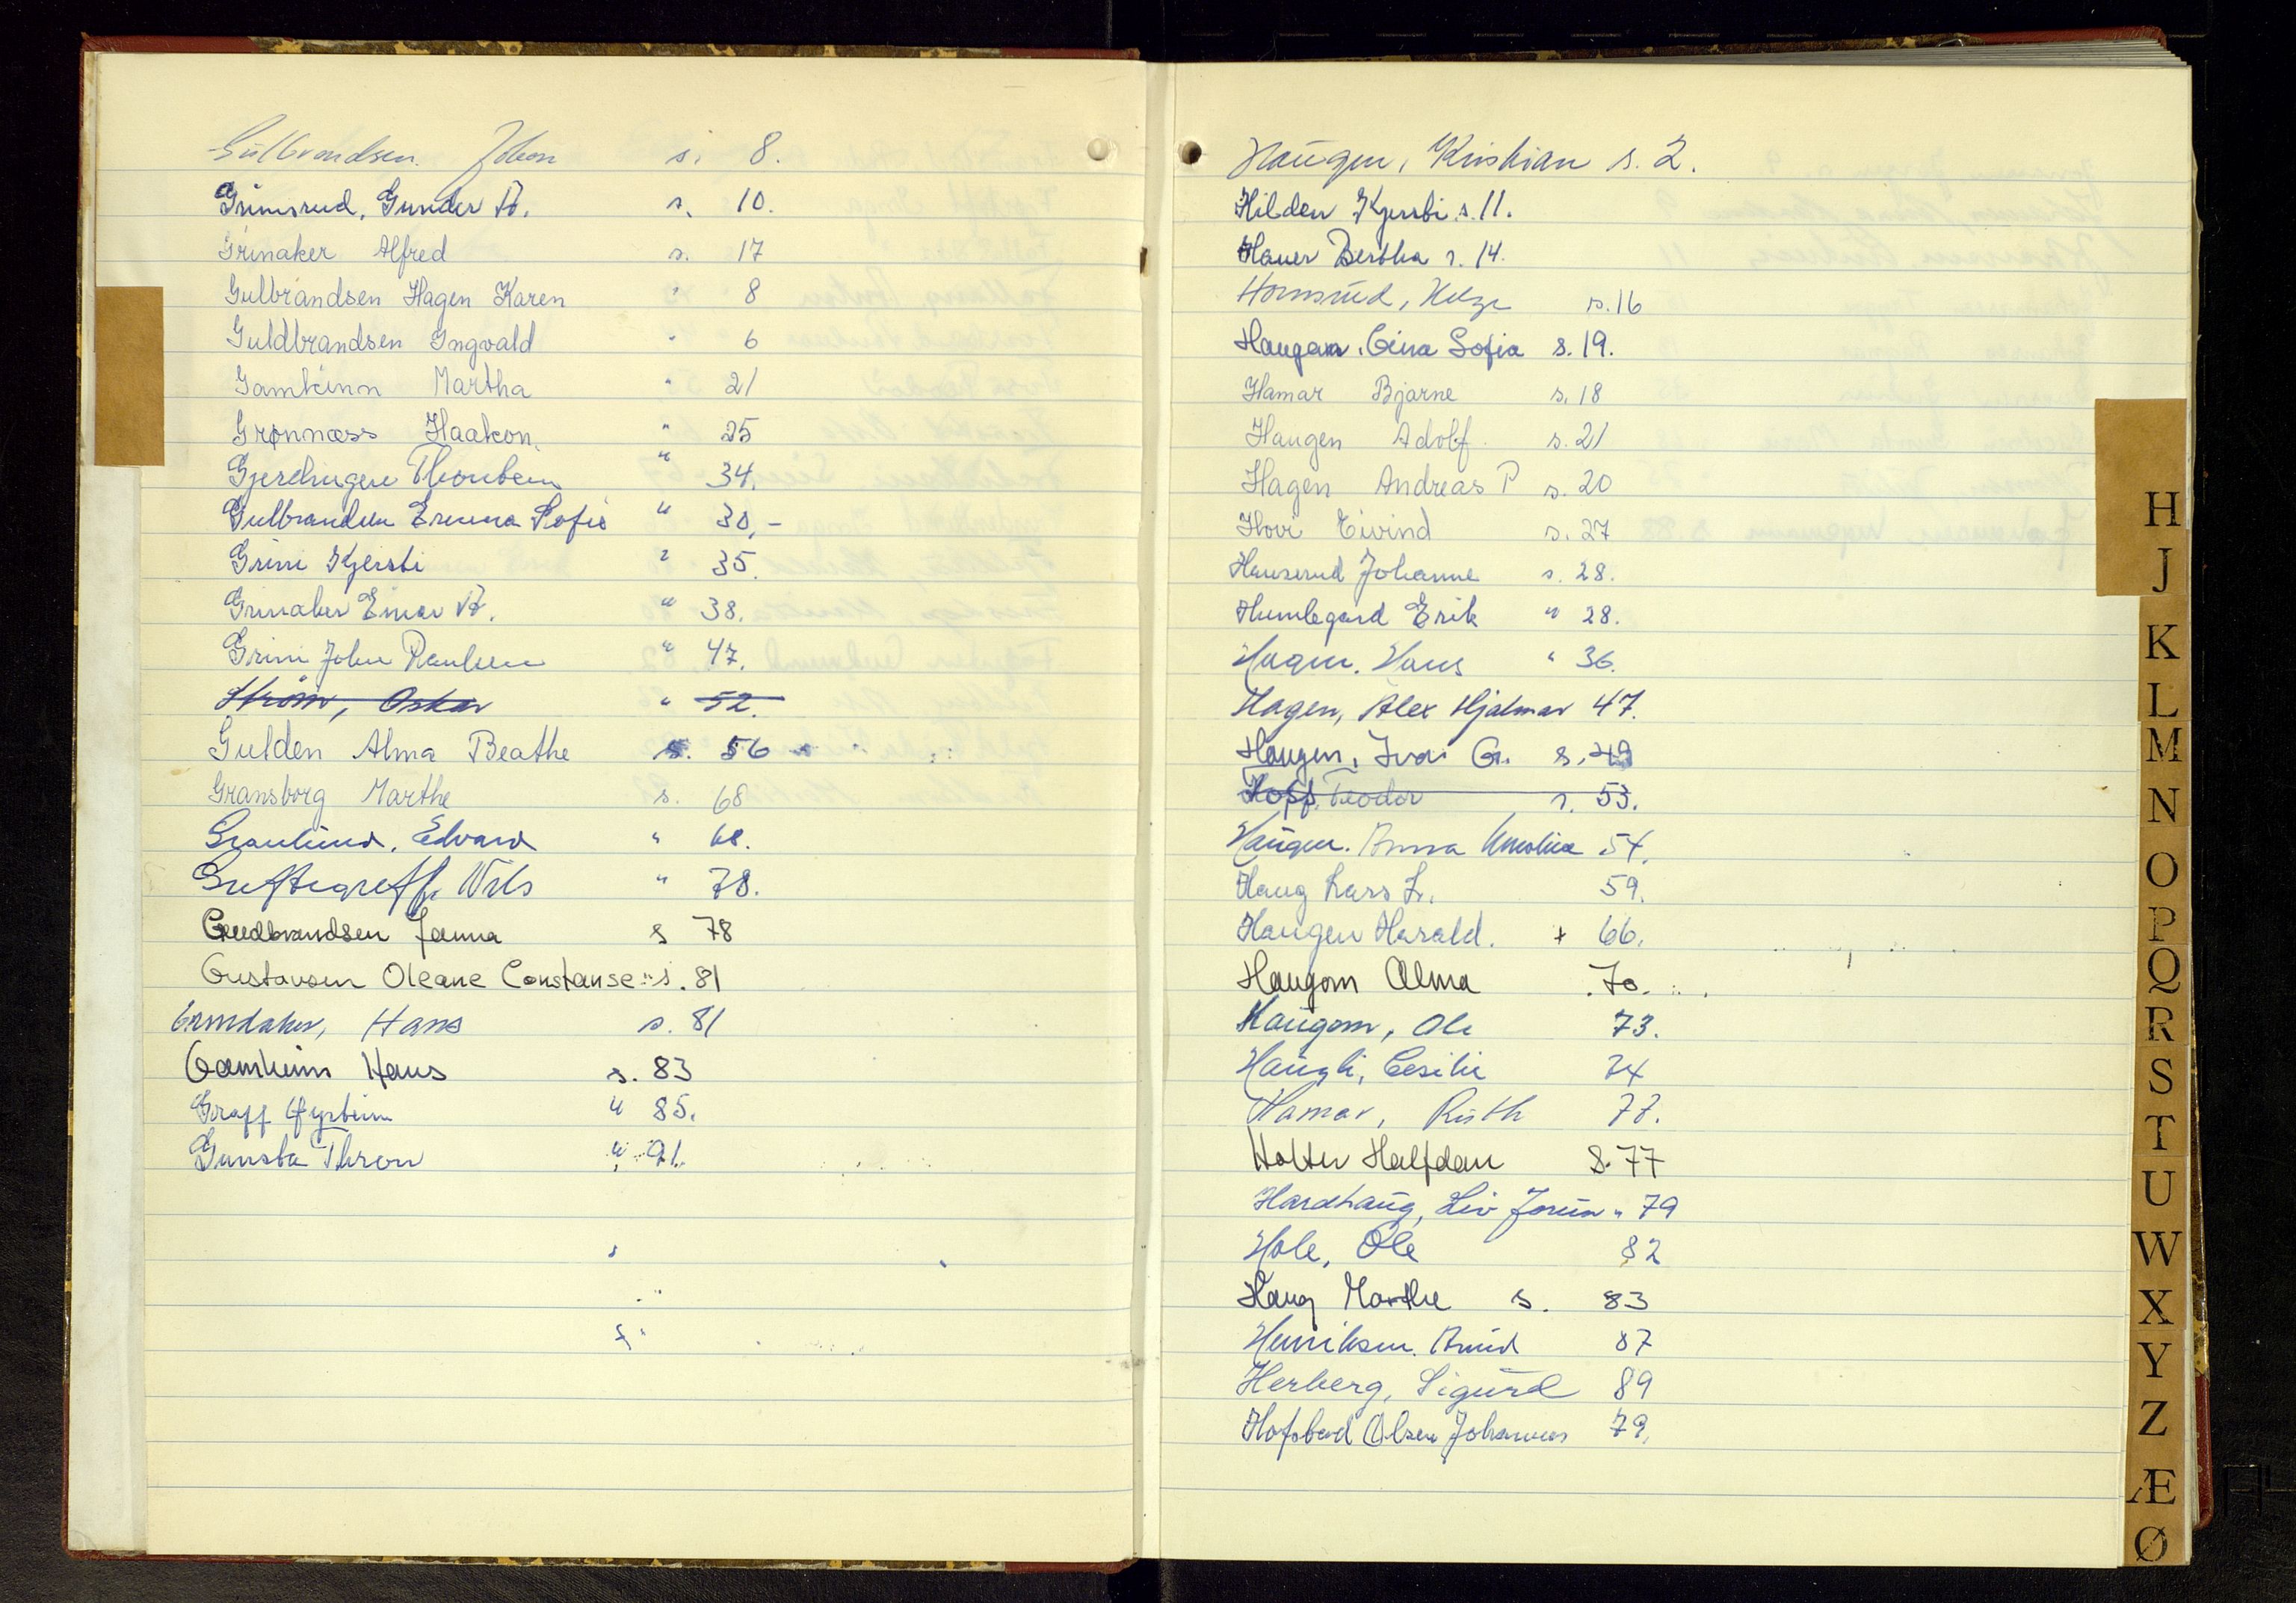 Gulbrandsen. Johan s. 8.
Grimsrud, Gunder A. s. 10.
Grinaker Alfred s. 17
Gulbrandsen Hagen Karen " 8
Guldbrandsen Ingvald " 6
Gamkinn Martha " 21
Grønnæss Haakon. " 25
Gjerdingen Thorbein " 34.
Gulbrandsen Emma Sofie " 30,-
Grini Kjersti " 35.
Grinaker Einar A. " 38.
Grini John Paulsen " 47.
Strøm, Oskar " 52.
Gulden Alma Beathe s. 56
Gransborg Marthe s. 68
Granlund, Edvard " 68.
Greftegreff, Nils " 78.
Gudbrandsen Janna s 78
Gustavsen Oleane Constanse s. 81
Grindaker, Hans s. 81
Gamheim Hans s. 83
Graff Øystein " 85.
Gunsta Thron " 91.
Haugen, Kristian s. 2.
Hilden Kjersti s. 11.
Hauer Bertha s. 14.
Hornsrud, Helge s. 16
Haugen, Gina Sofia s. 19.
Hamar Bjarne s. 18
Haugen Adolf. s. 21
Hagen Andreas P s. 20
Hovi Eivind s. 27
Hanserud Johanne s. 28.
Humlegard Erik " 28.
Hagen. Hans " 36.
Hagen, Alex Hjalmar 47.
Haugen, Ivar G. s. 49
Hoff, Teodor s. 53.
Haugen. Anna 54.
Haug Lars L. 59.
Haugen Harald. + 66.
Haugom Alma .70.
Haugom, Ole 73.
Haugli, Cesilie 74
Hamar, Ruth 77.
Holter Halfdan S. 77
Hardhaug, Liv Jorun " 79
Hole, Ole 82
Haug Marthe s. 83
Henriksen. Arnid 87
Herberg, Sigurd 89
Hofsbod Olsen Johannes 79.
H
J
K
L
M
N
O
P
Q
R
S
T
U
W
X
Y
Z
Æ
Ø